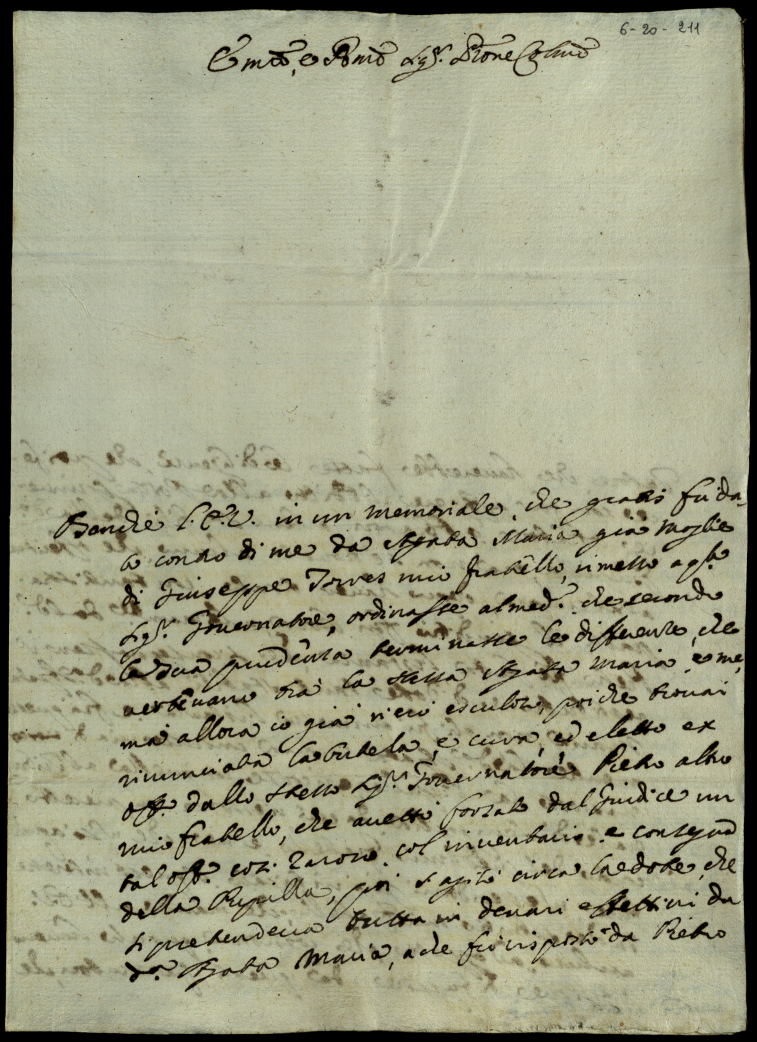 6-20-211
Em̃o, e Rm̃o Sig.r Pr̃one Col̃mo
Benche l'E.V. in un memoriale, che gratis fu da-
to contro di me da Agata Maria già moglie
di Giuseppe Torres mio fratello, rimesso a q.to
Sig.r Governatore, ordinasse al med.o che secondo
la sua prudenza terminasse le differenze, che
vertevano trà la stessa Agata Maria, e me,
mà allora io già n'ero escluso, poiche trovai
rinunciata la tutela, e cura, ed eletto ex
off.o dallo stesso Sig.r Governatore Pietro altro
mio fratello, che accettò forzato dal Giudice un
tal off.o col inventario e consegna
della Pupilla, poi s'agitò circa la dote, che
si pretendeva tutta in denari effettivi da
d.a Agata Maria, a che fù risposto da Pietro